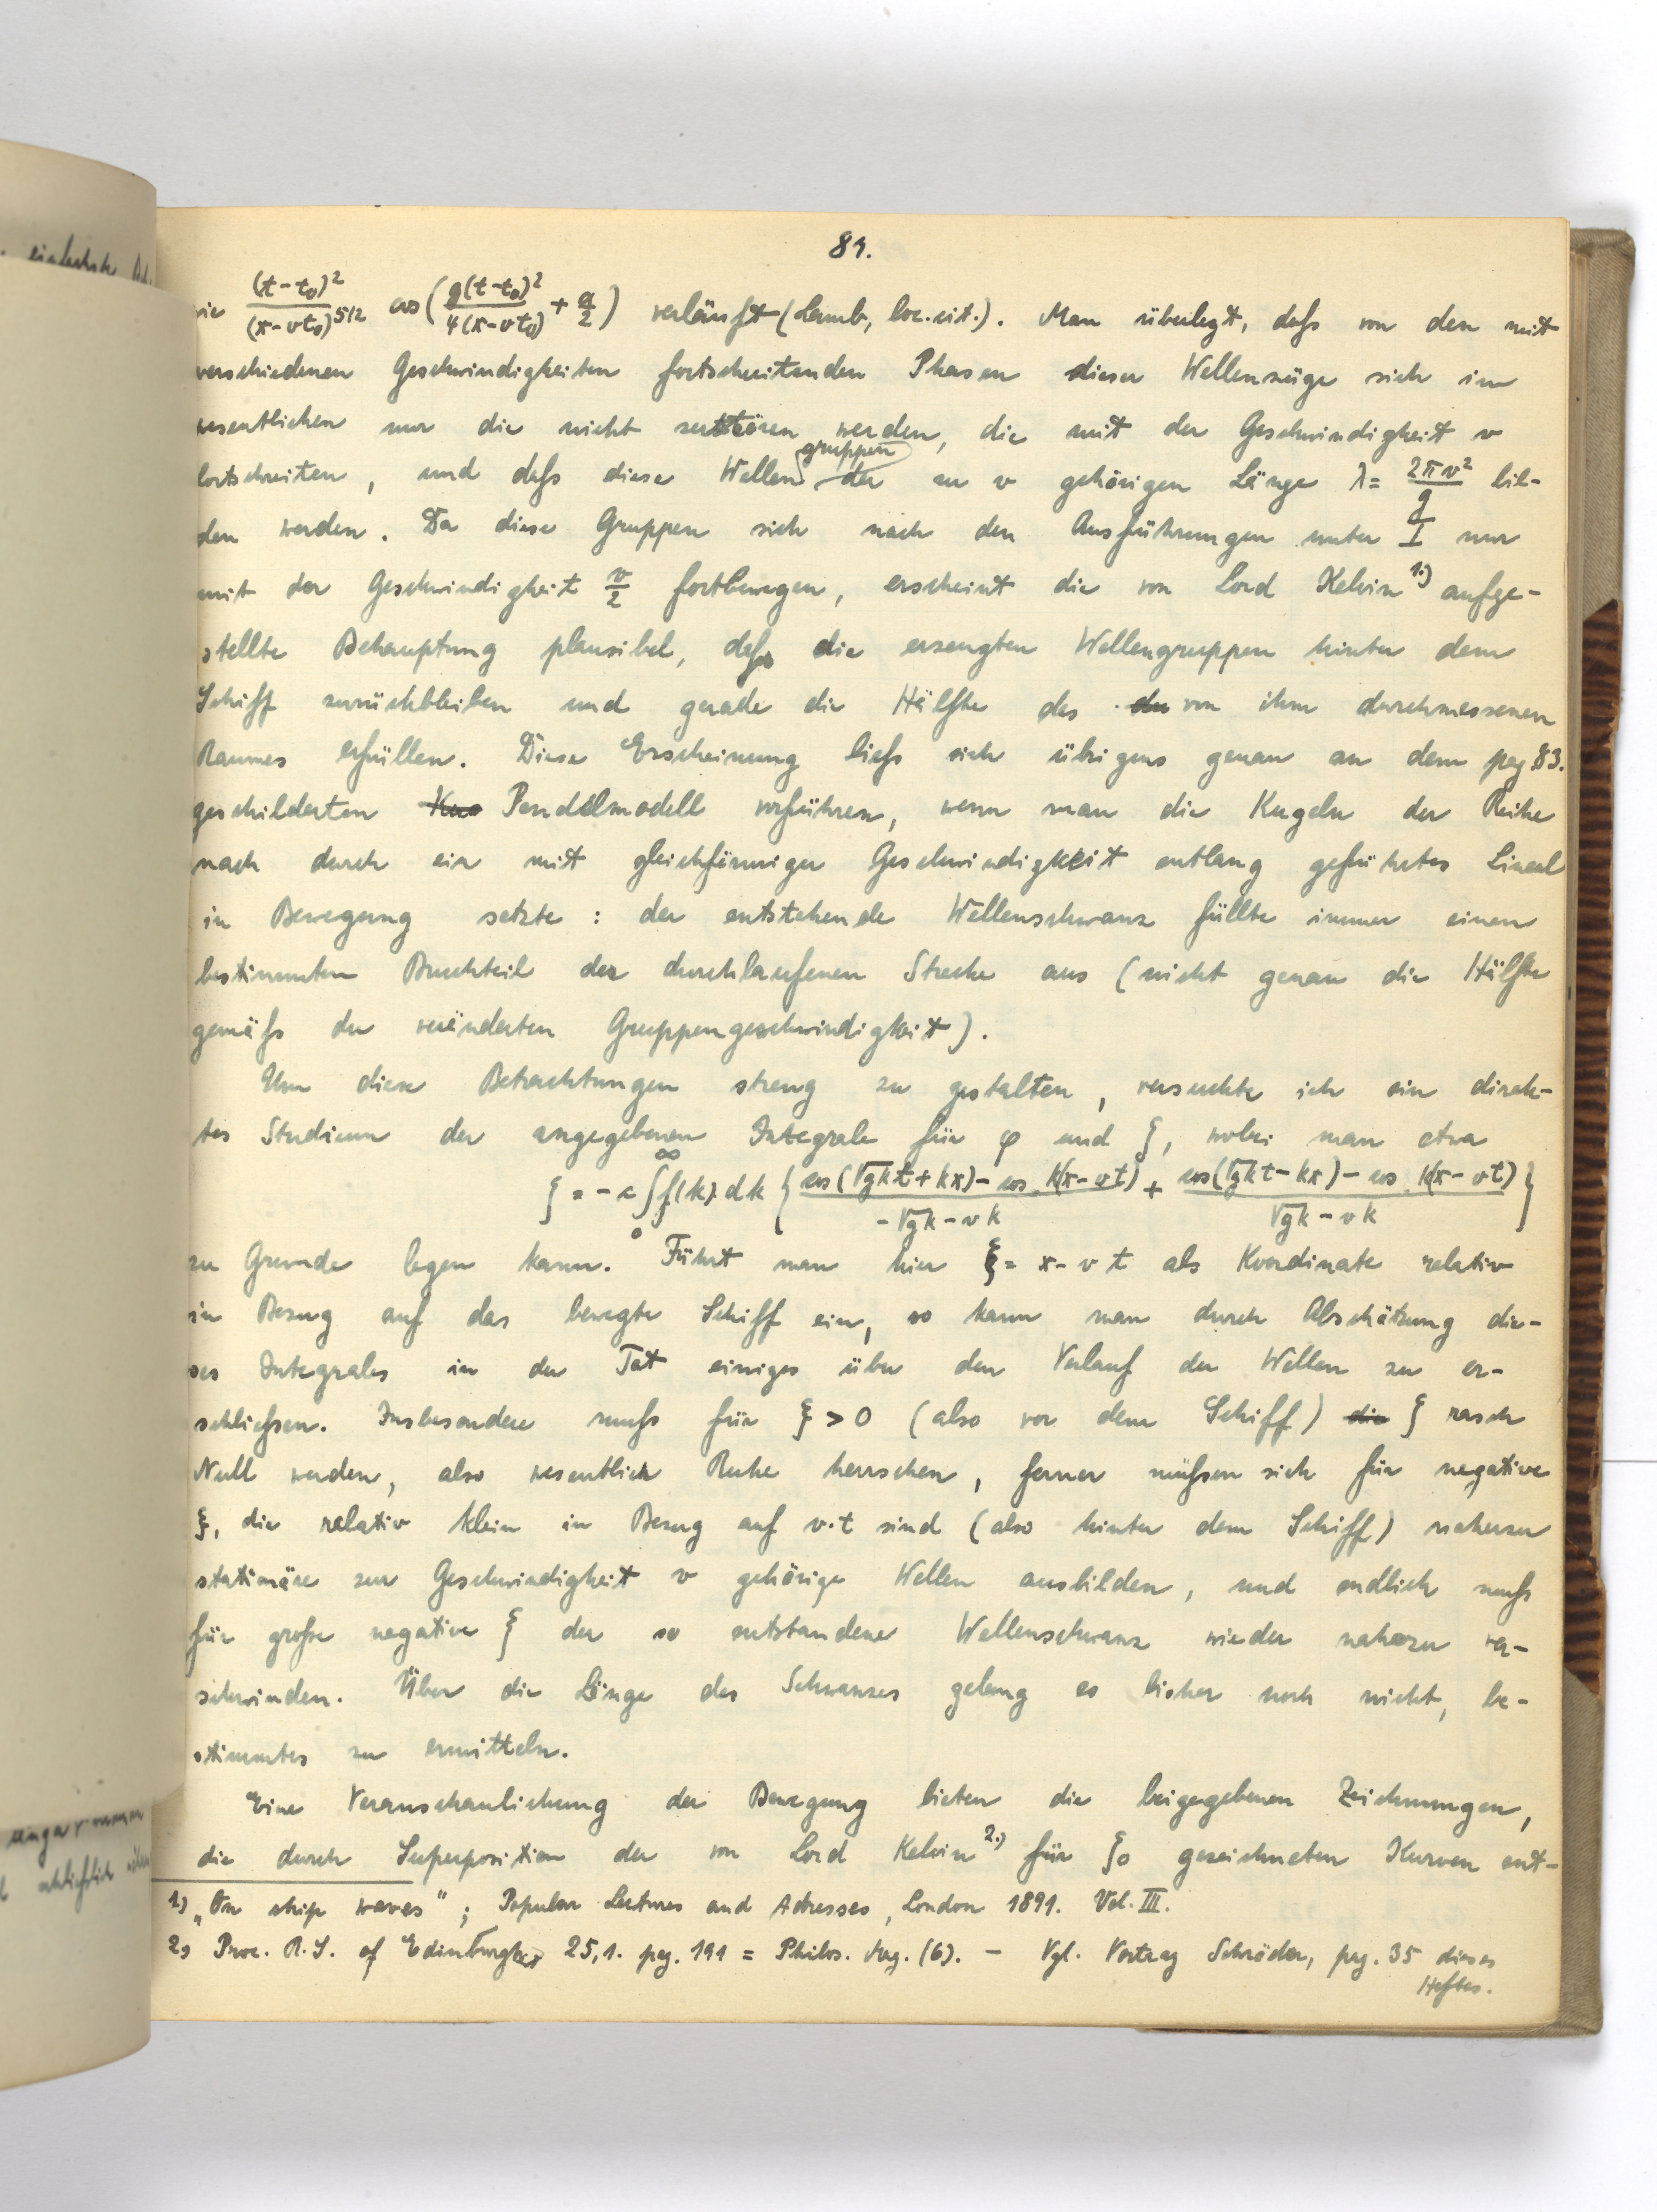 89.
wie (t-t₀)²/(x-vt₀)^5/2 cos(g(t-t₀)²/4(x-vt₀) + α/2) verläuft (Lamb, loc. cit.). Man überlegt, daſs von den mit
verschiedenen Geschwindigkeiten fortschreitenden Phasen dieser Wellenzüge sich im
wesentlichen nur die nicht zerstören werden, die mit der Geschwindigkeit v
fortschreiten, und daſs diese Wellengruppen der zu v gehörigen Länge λ = 2πv²/g bil-
den werden. Da diese Gruppen sich nach den Ausführungen unter I nur
mit der Geschwindigkeit v/2 fortbewegen, erscheint die von Lord Kelvin 1.) aufge-
stellte Behauptung plausibel, daſs die erzeugten Wellengruppen hinter dem
Schiff zurückbleiben und gerade die Hälfte des von ihm durchmessenen
Raumes erfüllen. Diese Erscheinung lieſs sich übrigens genau an dem pag. 83.
geschilderten Pendelmodell vorführen, wenn man die Kugeln der Reihe
nach durch ein mit gleichförmiger Geschwindigkeit entlang geführtes Lineal
in Bewegung setzte: der entstehende Wellenschwanz füllte immer einen
bestimmten Bruchteil der durchlaufenen Strecke aus (nicht genau die Hälfte
gemäſs der veränderten Gruppengeschwindigkeit).
Um diese Betrachtungen streng zu gestalten, versuchte ich ein direk-
tes Studium der angegebenen Integrale für φ und ζ, wobei man etwa
ζ = -c ∫₀^∞ f(k) dk { cos(√gk t + kx) - cos k(x-vt) / -√gk - vk + cos(√gk t - kx) - cos k(x-vt) / √gk - vk }
zu Grunde legen kann. Führt man hier ξ = x - vt als Koordinate relativ
in Bezug auf das bewegte Schiff ein, so kann man durch Abschätzung die-
ses Integrales in der Tat einiges über den Verlauf der Wellen zu er-
schlieſsen. Insbesondere muſs für ξ > 0 (also vor dem Schiff) die ζ rasch
Null werden, also wesentlich Ruhe herrschen, ferner müſsen sich für negative
ξ, die relativ klein in Bezug auf v·t sind (also hinter dem Schiff) nahezu
stationäre zur Geschwindigkeit v gehörige Wellen ausbilden, und endlich muſs
für groſse negative ξ der so entstandene Wellenschwanz wieder nahezu ver-
schwinden. Über die Länge des Schwanzes gelang es bisher noch nicht, be-
stimmtes zu ermitteln.
Eine Veranschaulichung der Bewegung bieten die beigegebenen Zeichnungen,
die durch Superposition der von Lord Kelvin 2.) für ζ₀ gezeichneten Kurven ent-
1) „On ship waves"; Popular Lectures and Adresses, London 1891. Vol. III.
2) Proc. R. S. of Edinburgh 25,1. pag. 191 = Philos. Mag. (6). - Vgl. Vortrag Schröder, pag. 35 dieses
Heftes.